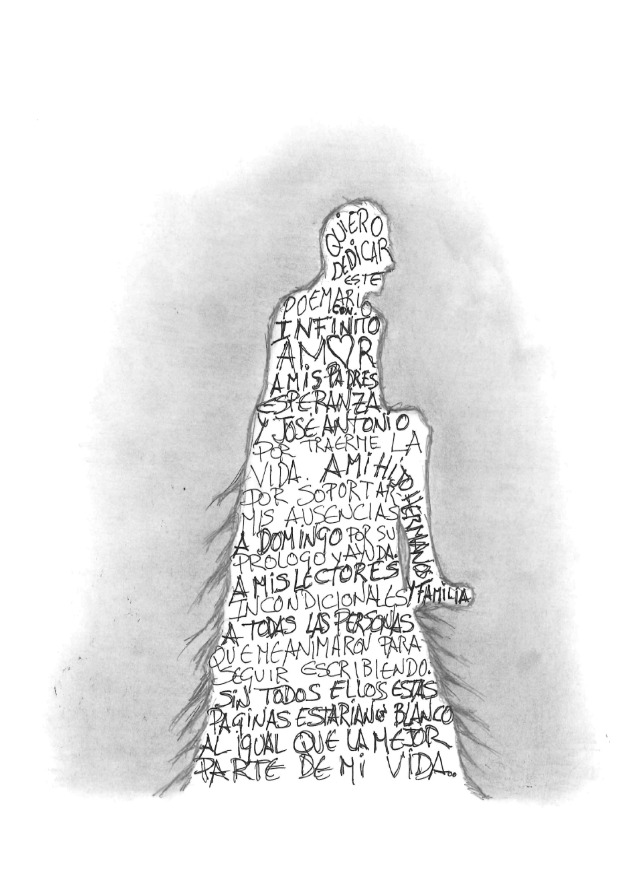 QUIERO
DEDICAR
ESTE
POEMARIO
CON
INFINITO
AMOR
A MIS PADRES
ESPERANZA
Y JOSÉ ANTONIO
POR TRAERME LA
VIDA. A MI HIJO, HERMANOS Y FAMILIA
POR SOPORTAR
MIS AUSENCIAS
A DOMINGO POR SU
PRÓLOGO Y AYUDA.
A MIS LECTORES
INCONDICIONALES
A TODAS LAS PERSONAS
QUE ME ANIMARON PARA
SEGUIR ESCRIBIENDO.
SIN TODOS ELLOS ESTAS
PAGINAS ESTARIAN EN BLANCO
AL IGUAL QUE LA MEJOR
PARTE DE MI VIDA..